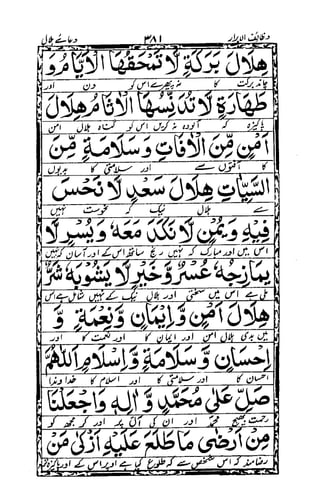 وظائف الابرار ۳۸۱ دعائے ہلال
هِلَالَ بَرَكَةٍ لَا تَمْحَقُهَا الْاَيَّامُ وَ
چاند برکت کا نہ اس کو دن اور
طَهَارَةٍ لَا تُدَنِّسُهَا الْاٰثَامُ هِلَالَ
پاکیزہ کہ آلودہ نہ کریں اس کو گناہ ہلال امن
اَمْنٍ مِّنَ الْاٰفَاتِ وَسَلَامَةٍ مِّنَ
کا آفتوں سے اور سلامتی کا بدیوں
السَّيِّاٰتِ هِلَالَ سَعْدٍ لَا نَحْسَ
سے ہلال نیک کہ نحوست نہیں
فِيْهِ وَيُمْنٍ لَا نَكَدَ مَعَهُ وَيُسْرٍ لَا
اس میں اور مبارک کہ نہیں رنج ساتھ اس کے اور آسان کہ نہیں
يُمَازِجُهُ عُسْرٌ وَّخَيْرٍ لَا يَشُوْبُهُ شَرٌّ
ملی ہے اس میں سختی اور ہلال نیک کہ نہیں شامل ہے اس
هِلَالَ اَمْنٍ وَّ اِيْمَانٍ وَّ نِعْمَةٍ وَّ
میں بدی ہلال امن اور ایمان کا اور نعمت کا اور
اِحْسَانٍ وَّ سَلَامَةٍ وَّ اِسْلَامٍ اَللّٰهُمَّ
احسان کا اور سلامتی کا اور اسلام کا خداوندا
صَلِّ عَلٰى مُحَمَّدٍ وَّ اٰلِهٖ وَاجْعَلْنَا
رحمت بھیج محمدؐ اور ان کی آل پر اور کر مجھ کو
مِنْ اَرْضٰى مَا طَلَعَ عَلَيْهِ اَزْكٰى مَنْ
رضامند کہ اس شخص سے کہ طلوع کیا ہے اوپر اس کے اور پاکیزہ